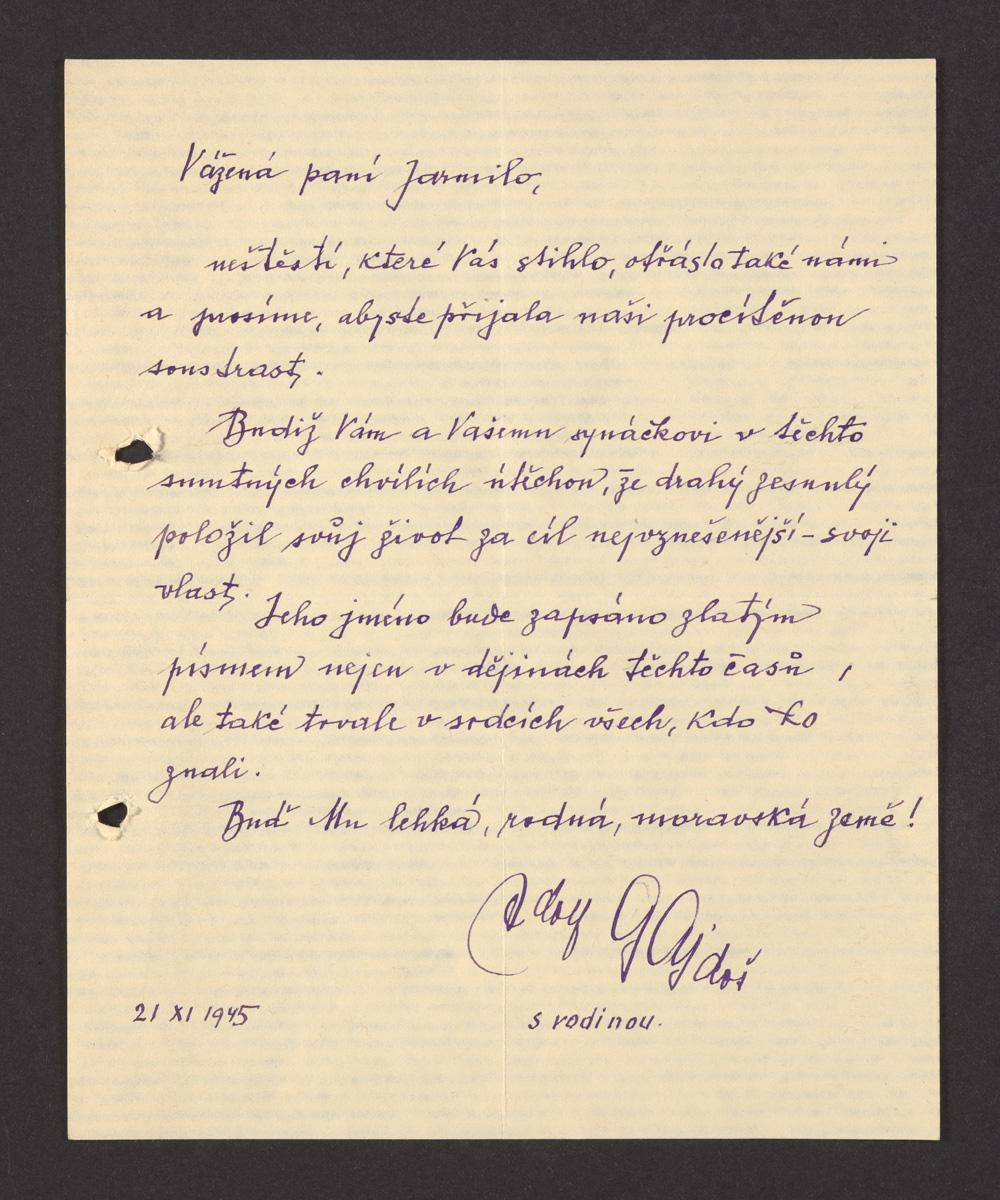 Vážená paní Jarmilo,
neštěstí, které Vás stihlo, otřáslo také námi
a prosíme, abyste přijala naši procítěnou
soustrast.
Budiž Vám a Vašemu synáčkovi v těchto
smutných chvílích útěchou, že drahý zesnulý
položil svůj život za cíl nejvznešenější - svoji
vlast.
Jeho jméno bude zapsáno zlatým
písmem nejen v dějinách těchto časů,
ale také trvale v srdcích všech, kdo ho
znali.
Buď Mu lehká, rodná, moravská země!
Gajdoš
21 XI 1945 s rodinou.